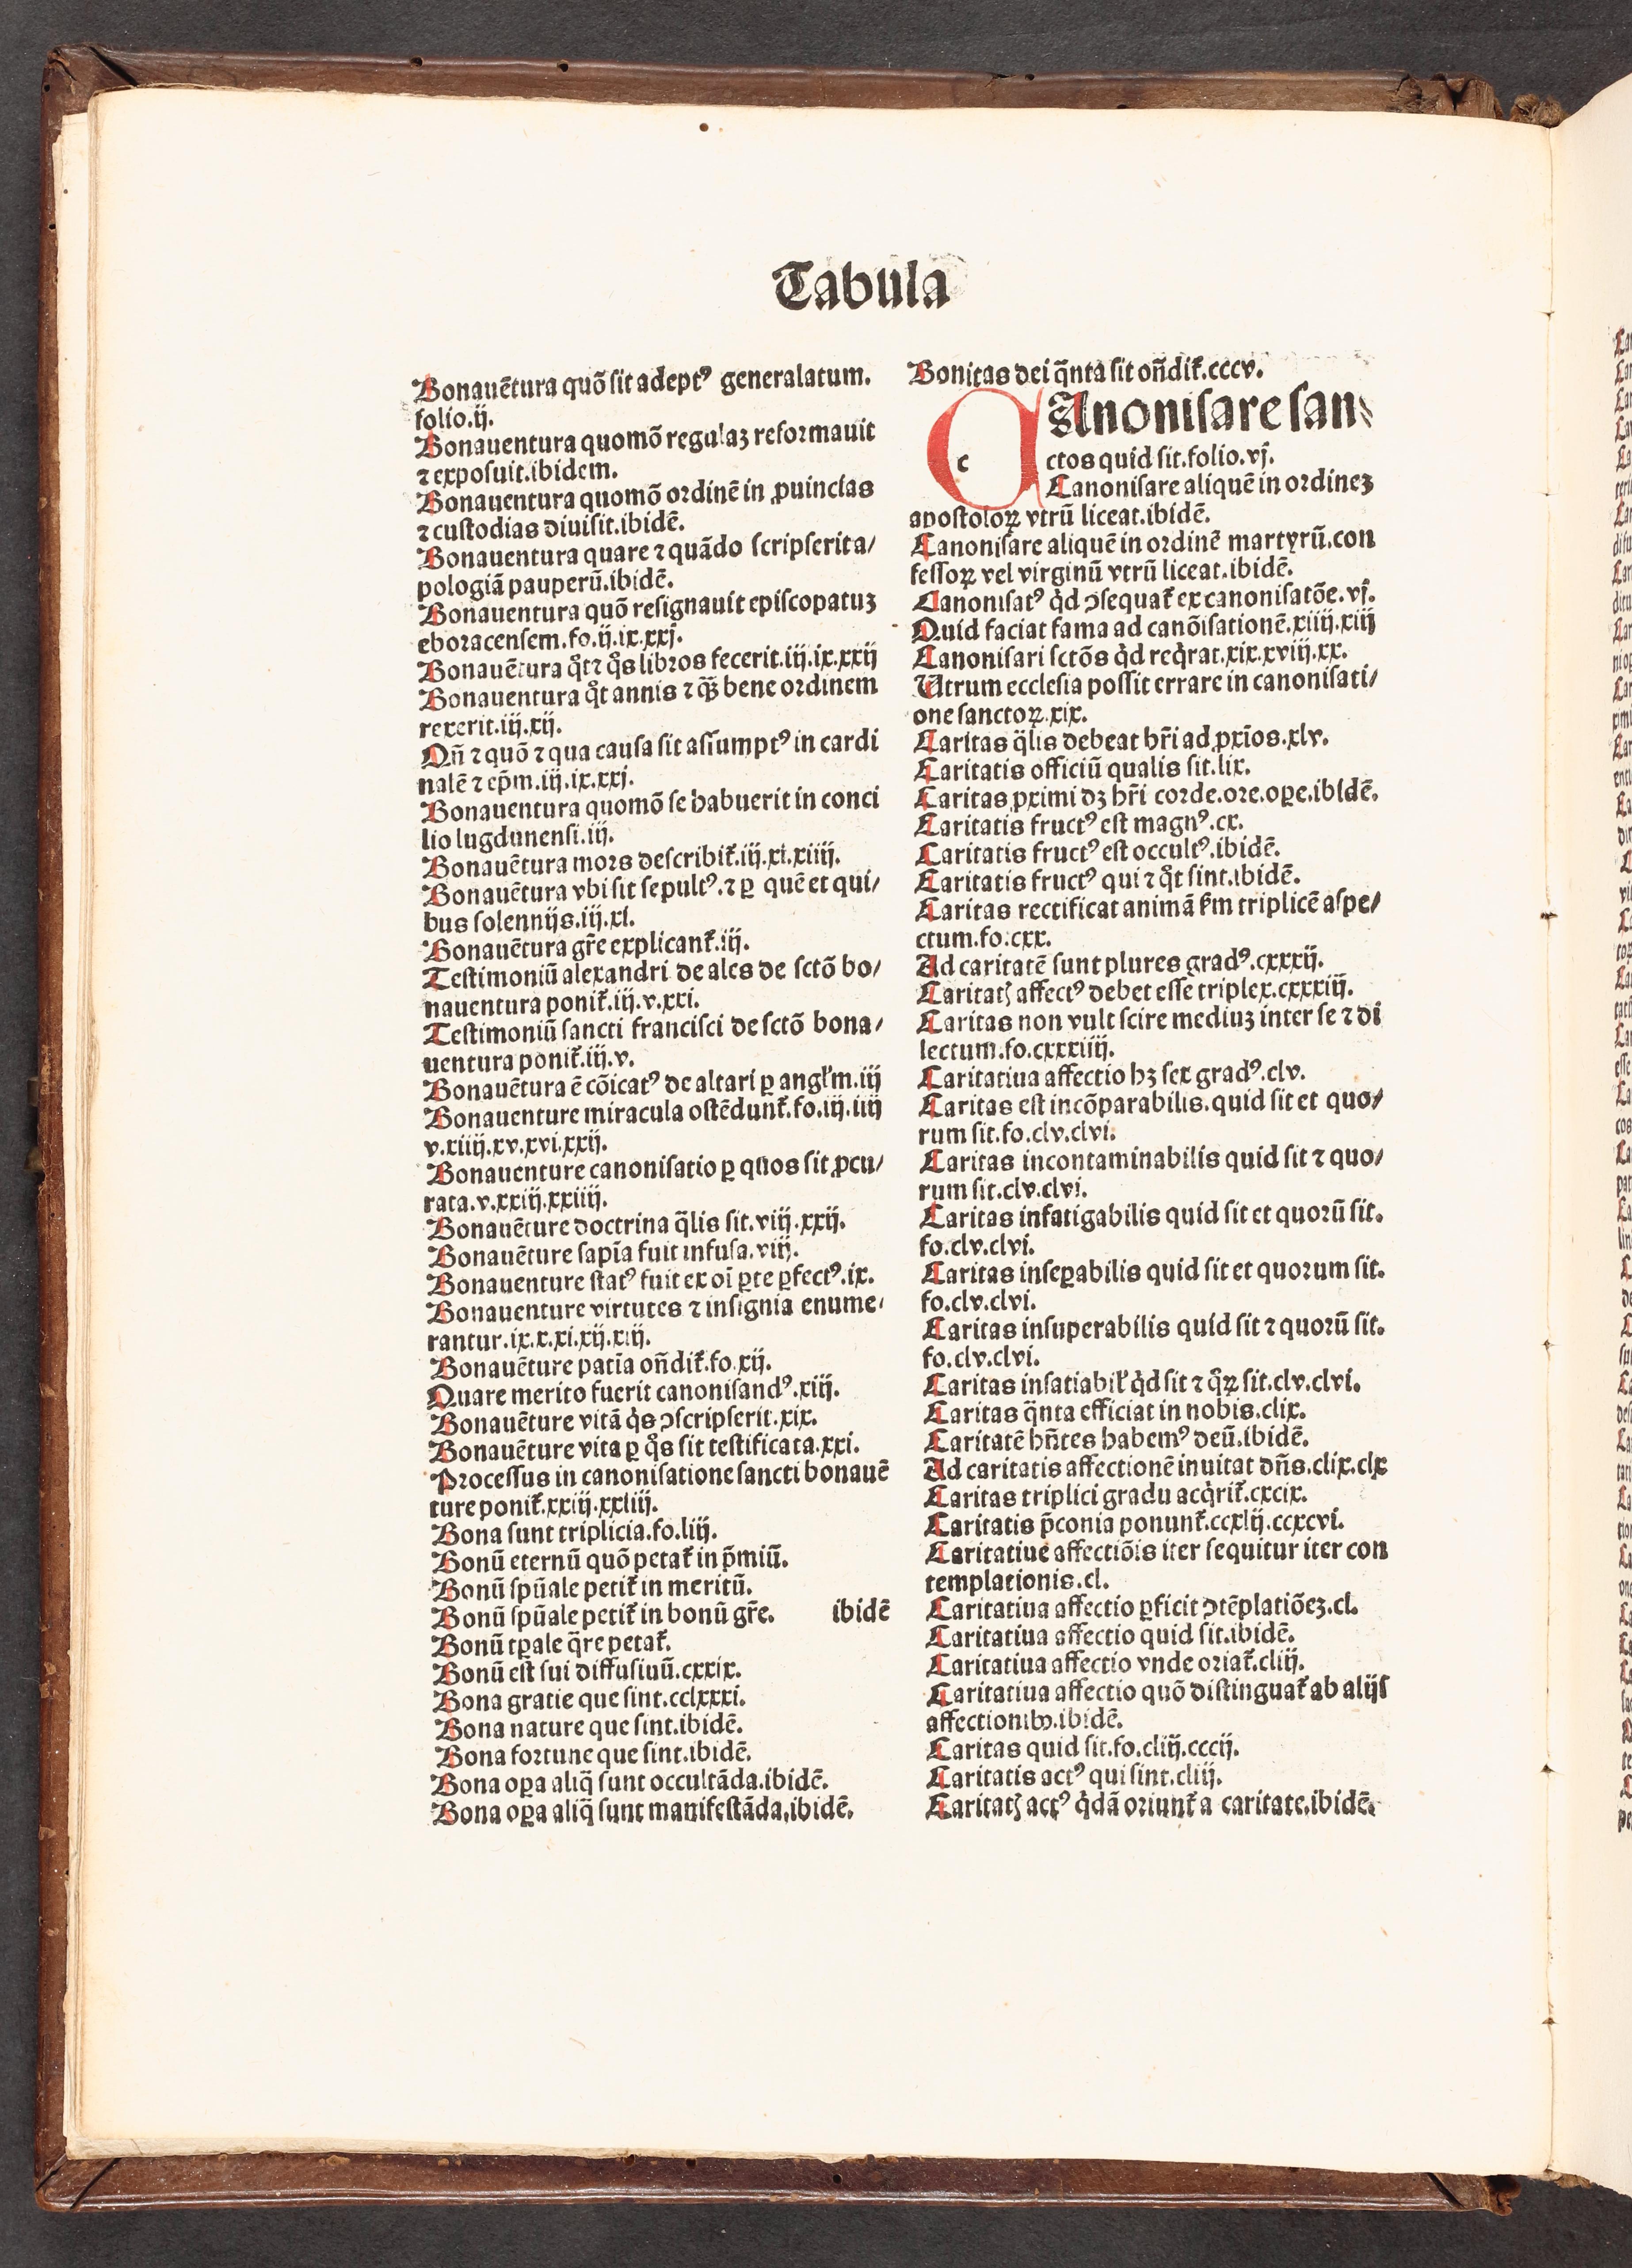 Tabula
Bonauētura quō sit adeptꝰ generalatum.
folio.ij.
Bonauentura quomō regulaʒ reformauit
⁊ exposuit.ibidem.
Bonauentura quomō ordinē in ꝓuincias
⁊ custodias diuisit.ibidē.
Bonauentura quare ⁊ quādo scripserit a/
pologiā pauperū.ibidē.
Bonauentura quō resignauit episcopatuʒ
eboracensem.fo.ij.ix.xxj.
Bonauētura qͦt ⁊ qͦs libros fecerit.iij.ix.xxij
Bonauentura qͦt annis ⁊ qꝫ̄ bene ordinem
rexerit.iij.xij.
Qn̄ ⁊ quō ⁊ qua causa sit assumptꝰ in cardi
nalē ⁊ ep̄m.iij.ix.xxj.
Bonauentura quomō se habuerit in conci
lio lugdunensi.iij.
Bonauētura mors describit᷑.iij.xi.xiiij.
Bonauētura vbi sit sepultꝰ.⁊ ꝑ quē et qui/
bus solennijs.iij.xi.
Bonauētura gr̄e explicant᷑.iij.
Testimoniū alexandri de ales de sctō bo/
nauentura ponit᷑.iij.v.xxi.
Testimoniū sancti francisci de sctō bona/
uentura ponit᷑.iij.v.
Bonauētura ē cōicatꝰ de altari ꝑ angl̄m.iij
Bonauenture miracula ostēdunt᷑.fo.iij.iiij
v.xiiij.xv.xvi.xxij.
Bonauenture canonisatio ꝑ quos sit ꝓcu/
rata.v.xxiij.xxiiij.
Bonauēture doctrina q̄lis sit.viij.xxij.
Bonauēture sapīa fuit infusa.viij.
Bonauenture statꝰ fuit ex oī ꝑte ꝑfectꝰ.ix.
Bonauenture virtutes ⁊ insignia enume/
rantur.ix.x.xi.xij.xiij.
Bonauēture patīa on̄dit᷑.fo.xij.
Quare merito fuerit canonisandꝰ.xiij.
Bonauēture vitā qͥs ꝯscripserit.xix.
Bonauēture vita ꝑ qͦs sit testificata.xxi.
Processus in canonisatione sancti bonauē
ture ponit᷑.xxiij.xxiiij.
Bona sunt triplicia.fo.liij.
Bonū eternū quō petat᷑ in p̄miū.
Bonū spūale petit᷑ in meritū.
Bonū spūale petit᷑ in bonū gr̄e. ibidē
Bonū tꝑale q̄re petat᷑.
Bonū est sui diffusiuū.cxxix.
Bona gratie que sint.cclxxxi.
Bona nature que sint.ibidē.
Bona fortune que sint.ibidē.
Bona oꝑa aliq̄ sunt occultāda.ibidē.
Bona oꝑa aliq̄ sunt manifestāda.ibidē.
Bonitas dei q̄nta sit on̄dit᷑.cccv.
c Anonisare san/
ctos quid sit.folio.vj.
Canonisare aliquē in ordineʒ
apostoloꝝ vtrū liceat.ibidē.
Canonisare aliquē in ordinē martyrū.con
fessoꝝ vel virginū vtrū liceat.ibidē.
Canonisatꝰ qͥd ꝯsequat᷑ ex canonisatōe.vj.
Quid faciat fama ad canōisationē.xiiij.xiij
Canonisari sctōs qͥd reqͥrat.xix.xviij.xx.
Utrum ecclesia possit errare in canonisati/
one sanctoꝝ.xix.
Caritas q̄lis debeat hr̄i ad ꝓxīos.xlv.
Caritatis officiū qualis sit.lix.
Caritas ꝓximi dʒ hr̄i corde.ore.oꝑe.ibidē.
Caritatis fructꝰ est magnꝰ.cx.
Caritatis fructꝰ est occultꝰ.ibidē.
Caritatis fructꝰ qui ⁊ qͦt sint.ibidē.
Caritas rectificat animā ẜm triplicē aspe/
ctum.fo.cxx.
Ad caritatē sunt plures gradꝰ.cxxxij.
Caritatꝭ affectꝰ debet esse triplex.cxxxiij.
Caritas non vult scire mediuʒ inter se ⁊ di
lectum.fo.cxxxiiij.
Caritatiua affectio hʒ sex gradꝰ.clv.
Caritas est incōparabilis.quid sit et quo/
rum sit.fo.clv.clvi.
Caritas incontaminabilis quid sit ⁊ quo/
rum sit.clv.clvi.
Caritas infatigabilis quid sit et quorū sit.
fo.clv.clvi.
Caritas inseꝑabilis quid sit et quorum sit.
fo.clv.clvi.
Caritas insuperabilis quid sit ⁊ quorū sit.
fo.clv.clvi.
Caritas insatiabil̓ qͥd sit ⁊ qͦꝝ sit.clv.clvi.
Caritas q̄nta efficiat in nobis.clix.
Caritatē hn̄tes habemꝰ deū.ibidē.
Ad caritatis affectionē inuitat dn̄s.clix.clx
Caritas triplici gradu acqͥrit᷑.cxcix.
Caritatis p̄conia ponunt᷑.ccxlij.ccxcvi.
Caritatiue affectiōis iter sequitur iter con
templationis.cl.
Caritatiua affectio ꝑficit ꝯtēplatiōeʒ.cl.
Caritatiua affectio quid sit.ibidē.
Caritatiua affectio vnde oriat᷑.cliij.
Caritatiua affectio quō distinguat᷑ ab alijs
affectionibꝫ.ibidē.
Caritas quid sit.fo.cliij.cccij.
Caritatis actꝰ qui sint.cliij.
Caritatꝭ actꝰ qͥdā oriunt᷑ a caritate.ibidē.